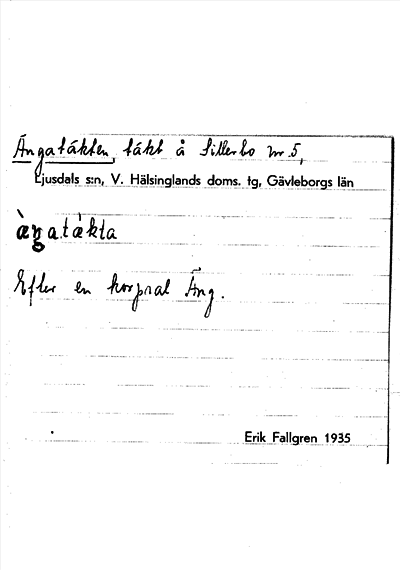 Ängatäkten, täkt å Sillerbo nr 5,
Ljusdals s:n, V. Hälsinglands doms. tg, Gävleborgs län
àŋatàkta
Efter en korpral Äng.
Erik Fallgren 1935